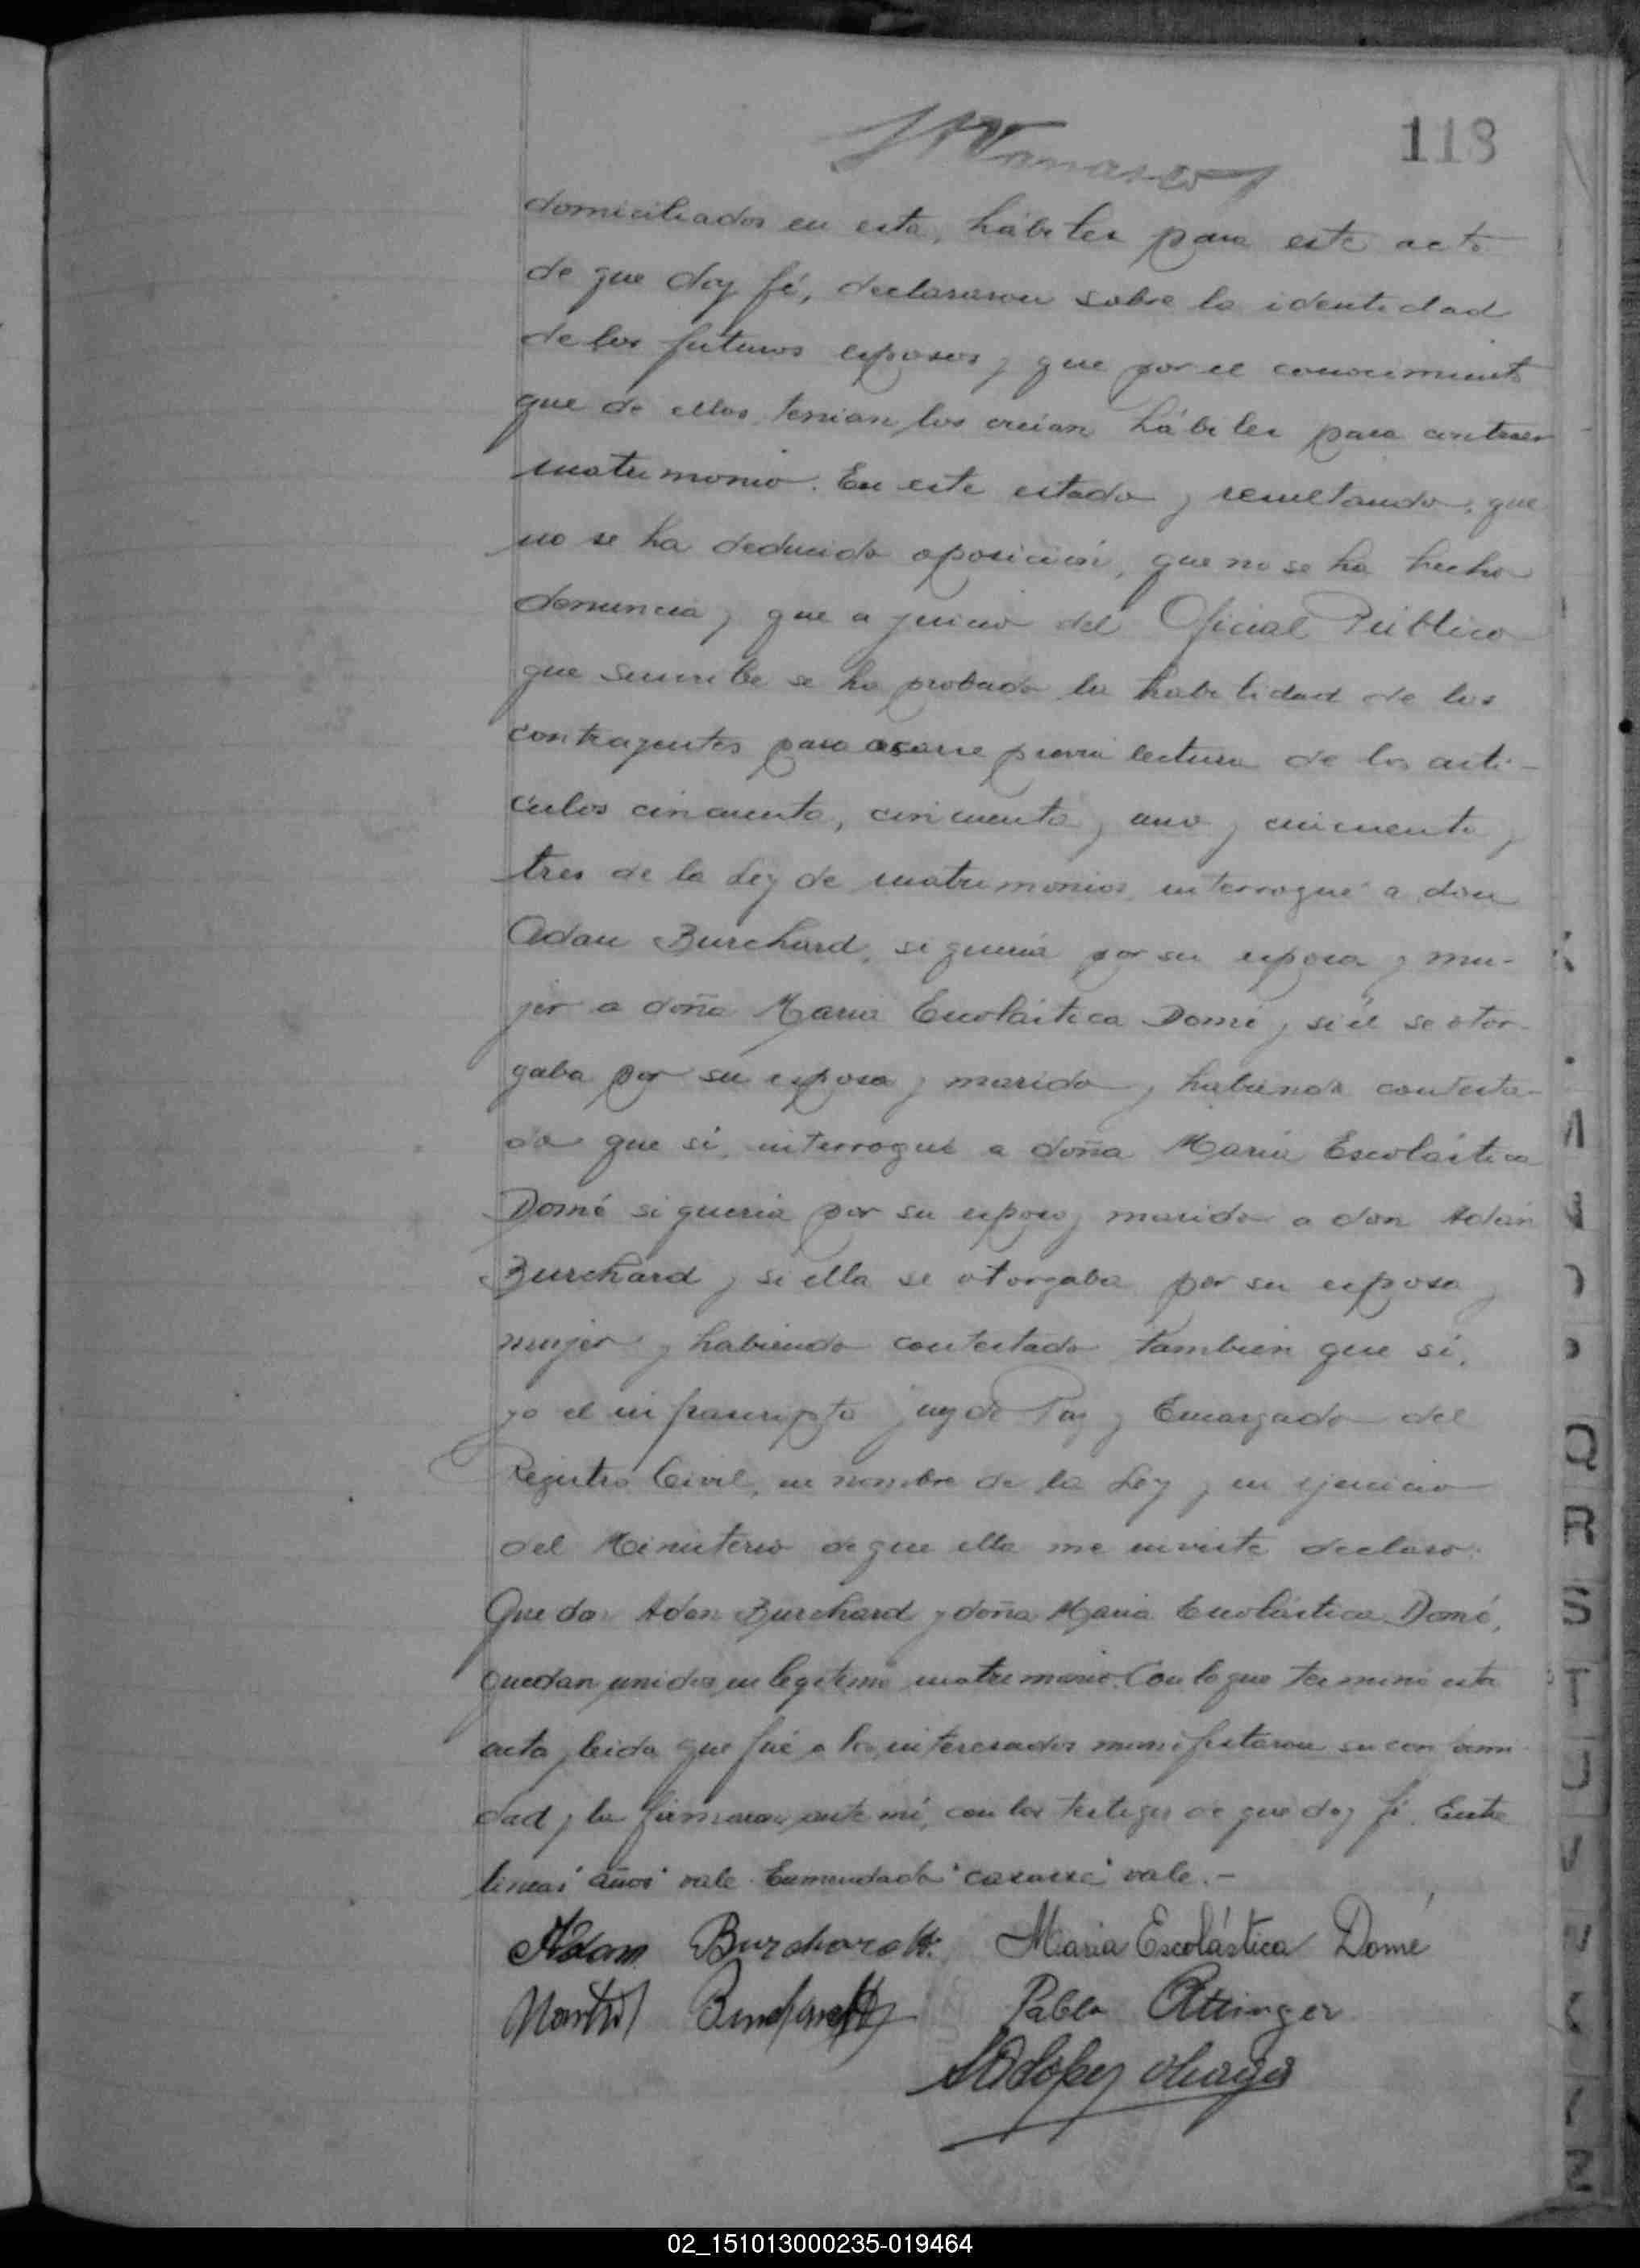 118
domiciliados en esta, hábiles para este acto
de que doy fé, declararon sobre la identidad
de los futuros esposos y que por el conocimiento
que de ellos tenian los creían hábiles para contraer
matrimonio. En este estado y resultando, que
no se ha deducido oposición, que no se ha hecho
denuncia y que a juicio del Oficial Público
que suscribe se ha probado la habilidad de los
contrayentes para casarse previa lectura de los artí-
culos cincuenta, cincuenta y uno y cincuenta y
tres de la Ley de matrimonios interrogué a don
Adan Burchard, si quería por su esposa y mu-
jer a doña María Escolástica Domé y si él se otor-
gaba por su esposo y marido y habiendo contesta-
do que sí, interrogué a doña María Escolástica
Domé si quería por su esposo y marido a don Adán
Burchard y si ella se otorgaba por su esposa y
mujer y habiendo contestado también que sí,
yo el infrascripto Juez de Paz y Encargado del
Registro Civil, en nombre de la Ley y en ejercicio
del Ministerio de que ella me inviste declaro:
Que don Adan Burchard y doña María Escolástica Domé,
quedan unidos en legítimo matrimonio. Con lo que terminó esta
acta y leida que fué a los interesados manifestaron su conformi
dad y la firmaron ante mí, con los testigos de que doy fé. Entre
lineas "años" vale. Enmendado "casarse" vale.-
Adam Burchardt. Maria Escolástica Domé
Pablo Ottinger
Q
R
S
T
U
V
Z
02_151013000235-019464